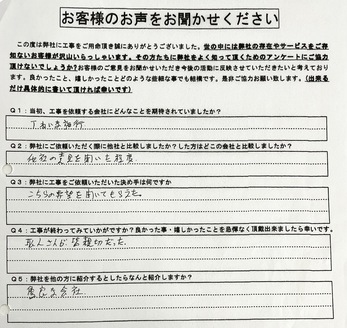 お客様のお声をお聞かせください
この度は弊社に工事をご用命頂き誠にありがとうございました。世の中には弊社の存在やサービスをご存知ないお客様が沢山いらっしゃいます。その方たちに弊社をよく知って頂くためのアンケートにご協力頂けないでしょうか?お客様のご意見をお聞かせいただき今後の活動に反映させていただきたいと考えております。良かったこと、嬉しかったことどのような些細な事でも結構です。是非ご協力お願い致します。(出来るだけ具体的に書いて頂ければ幸いです)
Q1:当初、工事を依頼する会社にどんなことを期待されていましたか?
丁ねいな施行
Q2:弊社にご依頼いただく際に他社と比較しましたか?した方はどこの会社と比較しましたか?
他社の意見を聞いた程度
Q3:弊社に工事をご依頼いただいた決め手は何ですか
こちらの希望を聞いてもらえた。
Q4:工事が終わってみていかがですか?良かった事・嬉しかったことを忌憚なく頂戴出来ましたら幸いです。
職人さんが皆親切だった。
Q5:弊社を他の方に紹介するとしたらなんと紹介しますか?
な会社